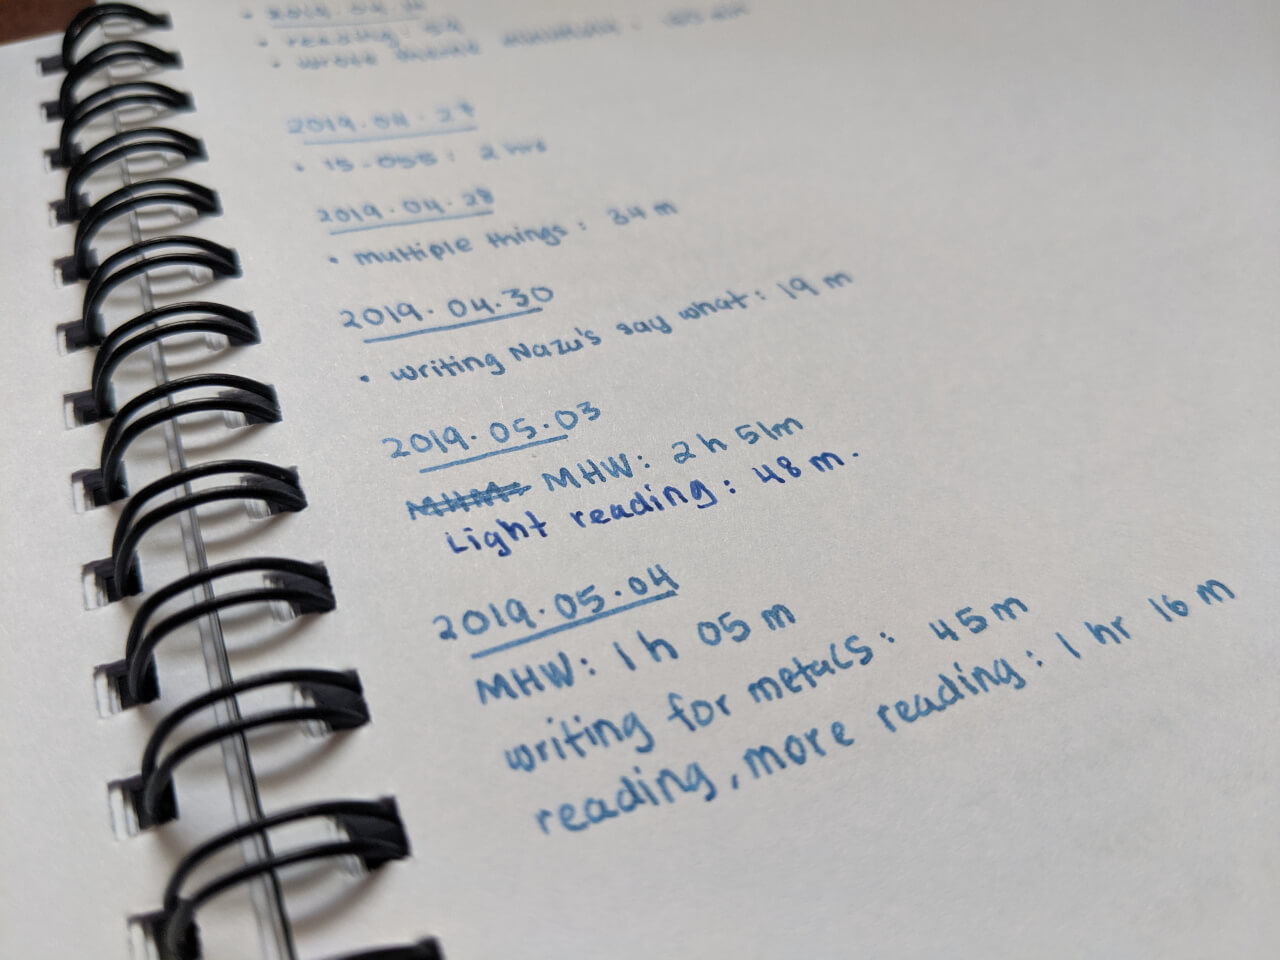 • reading:
• wrote
2019.04.27
• 15-055: 2 hrs
2019.04.28
• multiple things: 34 m
2019.04.30
• writing Nazu's say what: 19 m
2019.05.03
MHW: 2h 51m
Light reading: 48 m.
2019.05.04
MHW: 1h 05 m
writing for metals: 45 m
reading, more reading: 1 hr 16 m